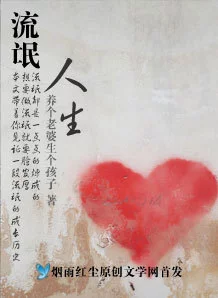 流氓
人生
养个老婆生个孩子 著
流氓都是一点点的炼成的
想要做流氓就要脸皮厚
本文带着你见证一段流氓的成长历史
烟雨红尘原创文学网首发